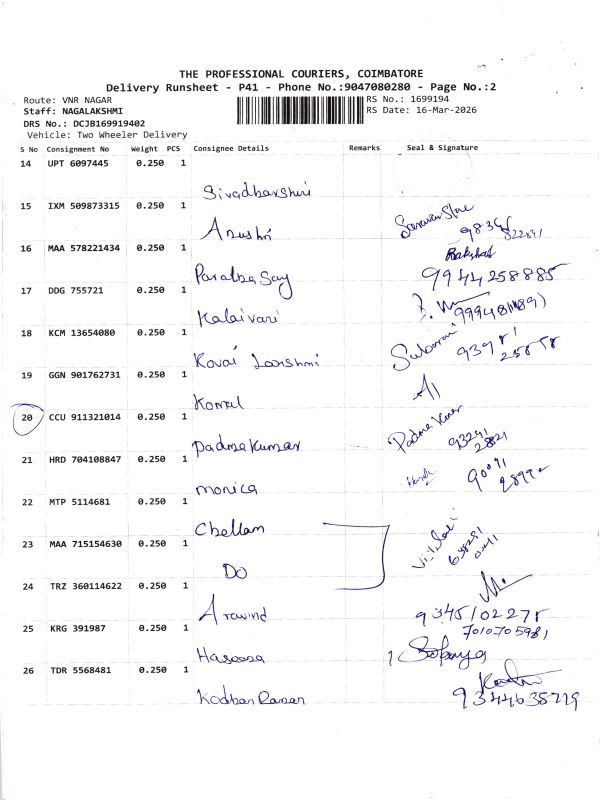 THE PROFESSIONAL COURIERS, COIMBATORE
Delivery Runsheet - P41 - Phone No.:9047080280 - Page No.:2
Route: VNR NAGAR
RS No.: 1699194
Staff: NAGALAKSHMI
RS Date: 16-Mar-2026
DRS No.: DCJB169919402
Vehicle: Two Wheeler Delivery
S No Consignment No Weight PCS Consignee Details Remarks Seal & Signature
14 UPT 6097445 0.250 1
Sivadharshini
15 IXM 509873315 0.250 1
Anushri
16 MAA 578221434 0.250 1
Rakshad
9944258885
17 DDG 755721 0.250 1
Kalaivani
18 KCM 13654080 0.250 1
Kovai Lakshmi
19 GGN 901762731 0.250 1
20 CCU 911321014 0.250 1
Padma Kumar
Padmakumar
21 HRD 704108847 0.250 1
monica
22 MTP 5114681 0.250 1
Chellam
23 MAA 715154630 0.250 1
Do
24 TRZ 360114622 0.250 1
Aravind
9345102275
7010705981
25 KRG 391987 0.250 1
26 TDR 5568481 0.250 1